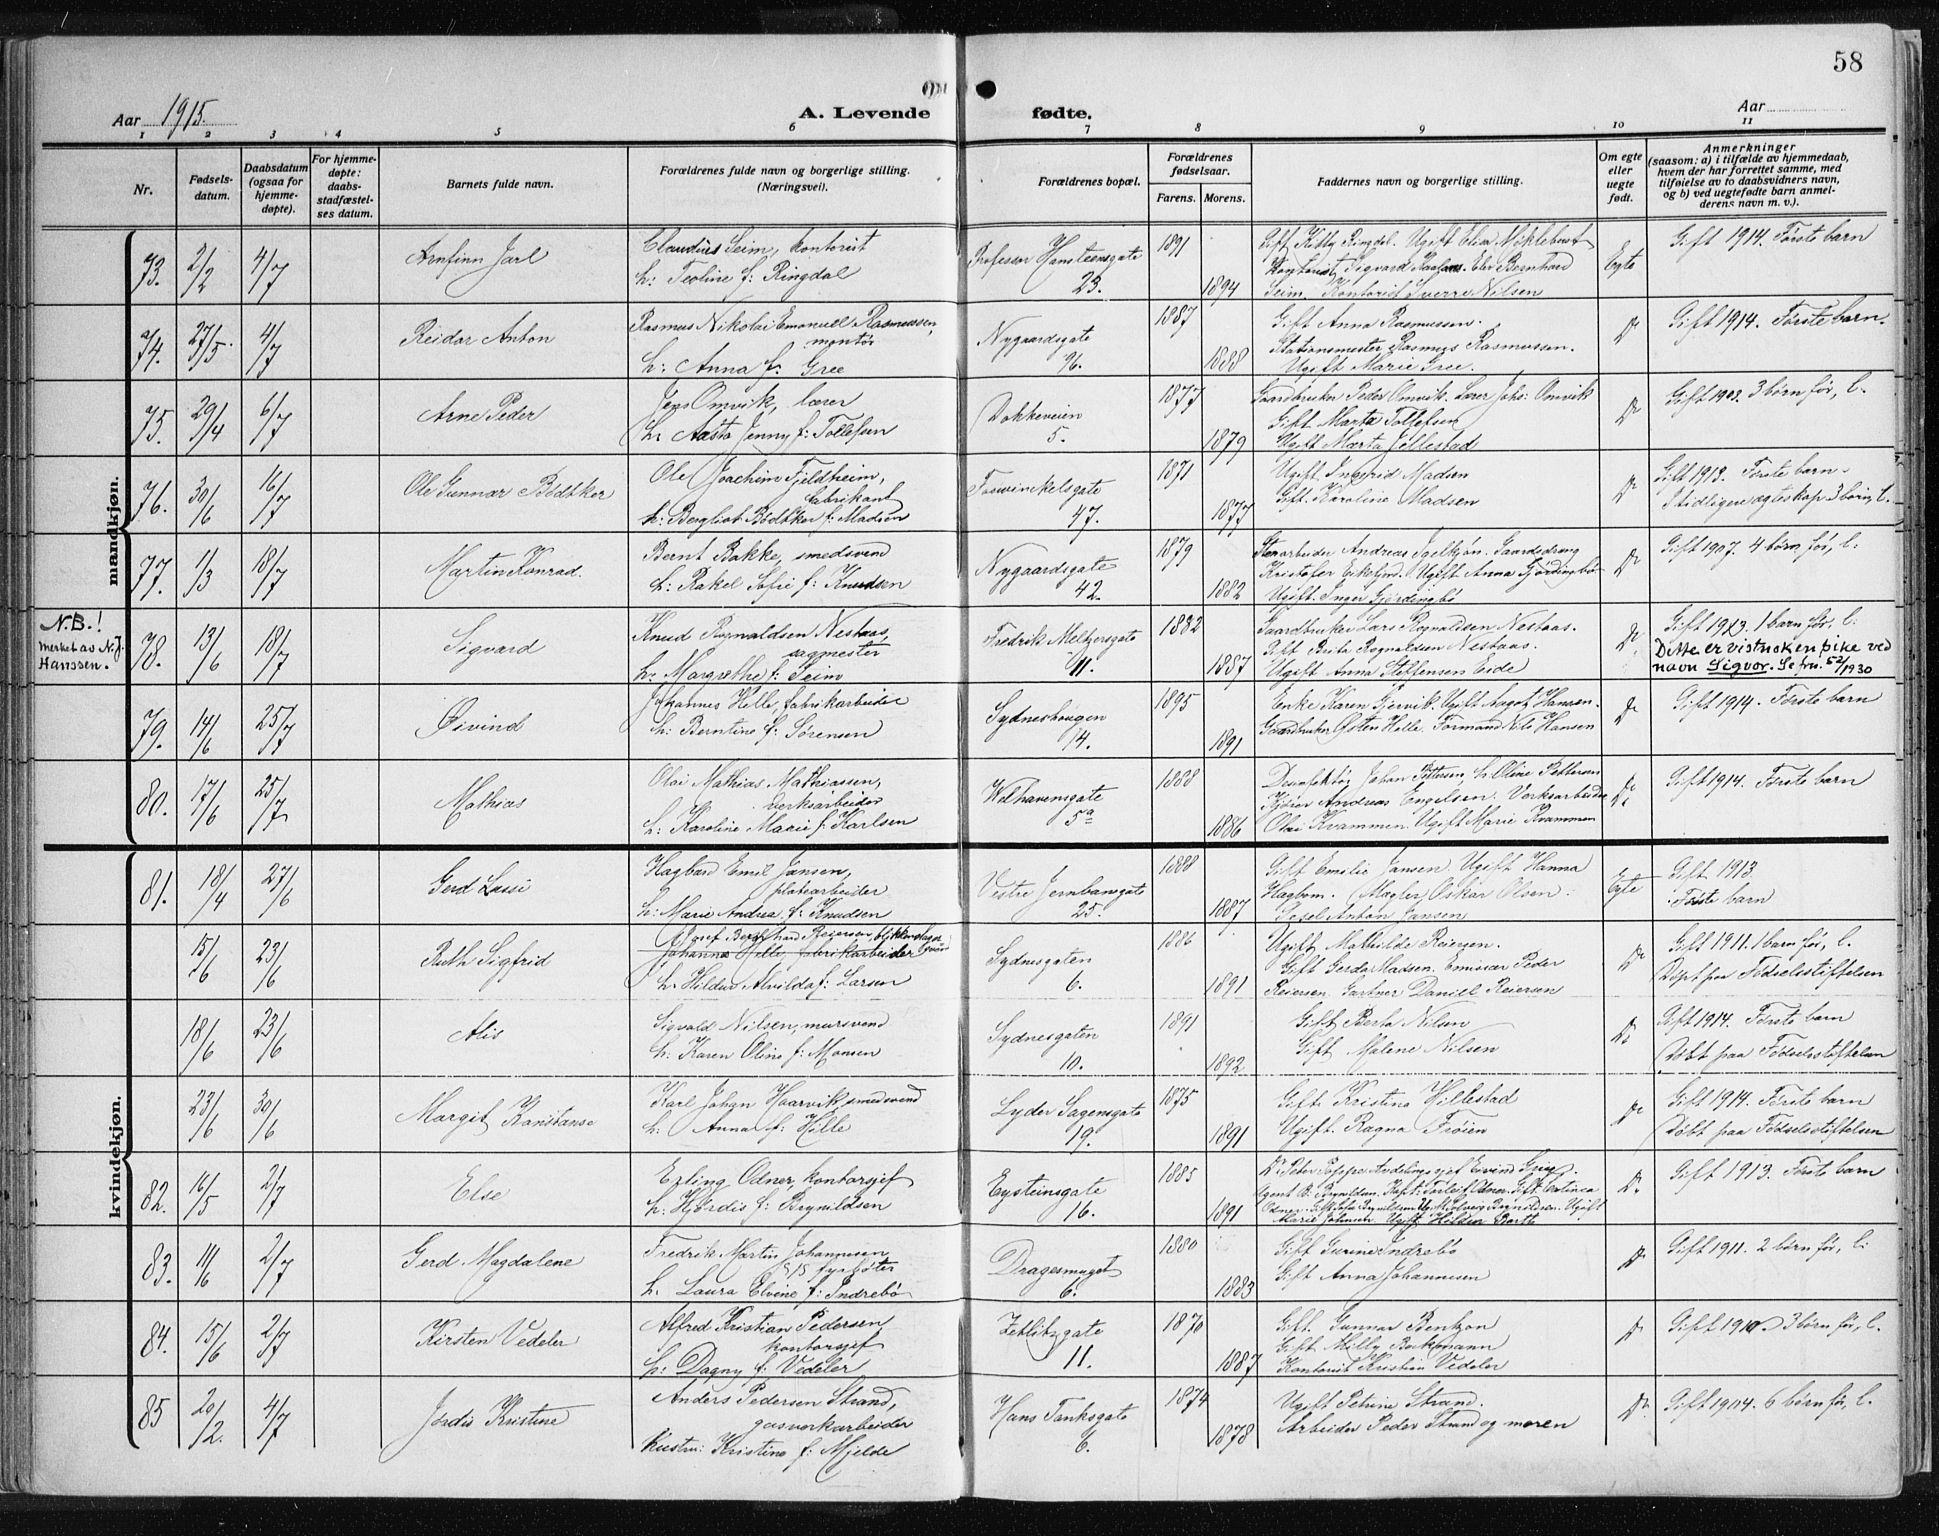 58
Aar 1915.
A. Levende
fødte.
Aar
1 2 3 4 5 6 7 8 9 10 11
Nr.
Fødselsdatum.
Daabsdatum (ogsaa for hjemmedøpte).
For hjemmedøpte: daabsstadfæstelses datum.
Barnets fulde navn.
Forældrenes fulde navn og borgerlige stilling. (Næringsvei).
Forældrenes bopæl.
Forældrenes fødselsaar.
Farens. Morens.
Faddernes navn og borgerlige stilling.
Om egte eller uegte født.
Anmerkninger (saasom: a) i tilfælde av hjemmedaab, hvem der har forrettet samme, med tilføielse av to daabsvidners navn, og b) ved uegtefødte barn anmelderens navn m. v.).
mandkjøn.
73. 2/2 4/7 Arnfinn Jarl
Claudius Seim, kontorist
h: Teoline f: Ringdal
Professor Hansteensgate 23.
1891 1894
Gift Kitty Ringdal. Ugift Elise Myklebust
Kontorist Sigvard Elev Bernhard
Seim. Kontorist Sverre Nilsen
Egte
Gift 1914. Første barn
74. 27/5. 4/7 Reidar Anton
Rasmus Nikolai Emanuell Rasmussen,
montør
h: Anna f: Gree
Nygaardsgate 96.
1887 1888
Gift Anna Rasmussen.
Stationsmester Rasmus Rasmussen.
Ugift Marie Gree.
Do
Gift 1914. Første barn.
75. 29/4 6/7 Arne Peder
Jens Omvik, lærer
h: Aasta Jenny f: Tollefsen
Dokkeveien 5.
1877 1879
Gaardbruker Peder Omvik. Lærer Johs: Omvik
Gift Marta Tollefsen
Ugift Marta Jellestad
Do
Gift 1902. 3 børn før, l.
76. 30/6 16/7 Ole Gunnar Bødtker
Ole Joachim Fjeldheim,
fabrikant
h: Bergliot Bødtker f: Madsen
Foswinkelsgate 47.
1871 1877
Ugift Ingrid Madsen
Gift. Karoline Madsen
Do
Gift 1913. Første barn.
I tidligere egteskap 3 børn, l.
77. 1/3 18/7 Martin Konrad.
Bernt Bakke, smedsvend
h: Rakel Sofie f: Knudsen
Nygaardsgate 42.
1879 1882
Stenarbeider Andreas Gaardsdreng
Kristofer Ugift Anna Gjerdingbø
Ugift. Inger Gjerdingbø
Do
Gift 1907. 4 børn før, l:
N.B.!
Merket av N.J.
Hanssen.
78. 13/6 18/7 Sigvard
Knud Rognaldsen Nestaas,
sagmester
h: Margrethe f: Seim
Fredrik Meltzersgate 11.
1882 1887
Gaardbruker Lars Rognaldsen Nestaas.
Gift Brita Rognaldsen Nestaas.
Ugift Anna Steffensen Eide
Do
Gift 1913. 1 barn før, l:
Dette er vistnok en pike ved
navn Sigvor. Se frn. 52/1930
79. 14/6 25/7 Øivind
Johannes Helle, fabrikarbeider
h: Berntine f: Sørensen
Sydneshougen 14.
1895 1891
Enke Karen Gjervik. Ugift Aagot Hansen.
Gaardbruker Østen Helle. Formand Nils Hansen
Do
Gift 1914. Første barn
80. 17/6 25/7 Mathias
Olai Mathias Mathiassen,
verksarbeider
h: Karoline Marie f: Karlsen
Welhavensgate 5a
1888 1886
Desinfektør Johan Pettersen, h. Oline Pettersen
Kjører Andreas Engelsen. Verksarbeider
Olai Kvammen. Ugift Marie Kvammen
Do
Gift 1914. Første barn
kvindekjøn.
81. 18/4 27/6 Gerd Lassi
Hagbard Emil Jansen,
platearbeider
h: Marie Andrea f: Knudsen
Vestre Jernbanegate 25.
1888 1887
Gift Emilie Jansen Ugift Hanna
Hagbom. Mægler Oskar Olsen.
Anton Jansen
Egte
Gift 1913
Første barn
15/6 23/6 Ruth Sigfrid
Bernhard Reiersen, blikkenslager
Johannes Helle, fabrikarbeider
h. Hildur Alvilda f: Larsen
Sydnesgaten 6.
1886 1891
Ugift Mathilde Reiersen.
Gift Gerda Madsen. Emissær Peder
Reiersen. Gartner Daniel Reiersen
Do
Gift 1911. 1 barn før, l.
Døpt paa Fødselsstiftelsen
18/6 23/6 Alis
Sigvald Nilsen, mursvend
h. Karen Oline f: Monsen
Sydnesgaten 10.
1891 1892
Gift Berta Nilsen
Gift Malene Nilsen
Do
Gift 1914. Første barn
Døbt paa Fødselsstiftelsen
23/6 30/6 Margit Konstanse
Karl Johan Haarvik, smedsvend
h. Anna f: Hille
Lyder Sagensgate 19.
1875 1891
Gift Kristina Hillestad
Ugift. Ragna Frøien
Do
Gift 1914. Første barn
Døbt paa Fødselsstiftelsen
82. 16/5 2/7 Else
Erling Odner, kontorsjef
h. Hjørdis f: Brynildsen
Eysteinsgate 16.
1885 1891
Dr Peter Avdelingssjef Eivind Grieg.
Agent B. Brynildsen. Kapt: Torleif Odner. Gift
Odner. Brynildsen. Brynildsen. Ugift
Marie Johnsen Ugift Hildur Barth
Do
Gift 1913. Første barn
83. 11/6 2/7 Gerd Magdalene
Fredrik Martin Johannesen
S/S fyrbøter
h. Laura Elvine f: Indrebø
Dragesmuget 6.
1880 1883
Gift Gurine Indrebø
Gift Anna Johannesen
Do
Gift 1911. 2 børn før, l:
84. 15/6 2/7 Kirsten Vedeler
Alfred Kristian Pedersen,
kontorsjef
h: Dagny f: Vedeler
Zetlitzgate 11.
1870 1887
Gift. Gunnar Bentzon
Gift Milly Beckmann
Kontorist Kristian Vedeler
Do
Gift 1910. 3 børn før, l.
85 20/2. 4/7 Jordis Kristine
Anders Pedersen Strand,
gasverkarbeider
hustru: Kristine f: Mjelde
Hans Tanksgate 6.
1874 1878
Ugift Petrine Strand.
Arbeider Peder Strand og moren
Do
Gift 1904. 6 børn før, l.